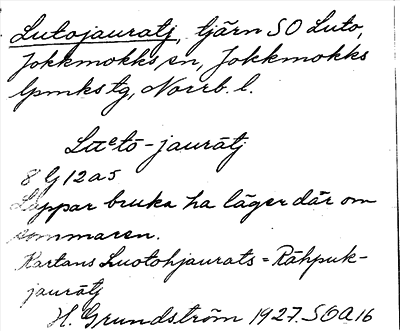 Lutojauratj, tjärn SO Luto,
Jokkmokks sn, Jokkmokks
lpmks tg, Norrb. l.
Luᵉtō-jaurātj
8 G 12 a 5
Lappar bruka ha läger där om
sommaren.
Kartans Luotohjaurats = Rāhpuk-
jaurātj
H. Grundström 1927. SOA 16